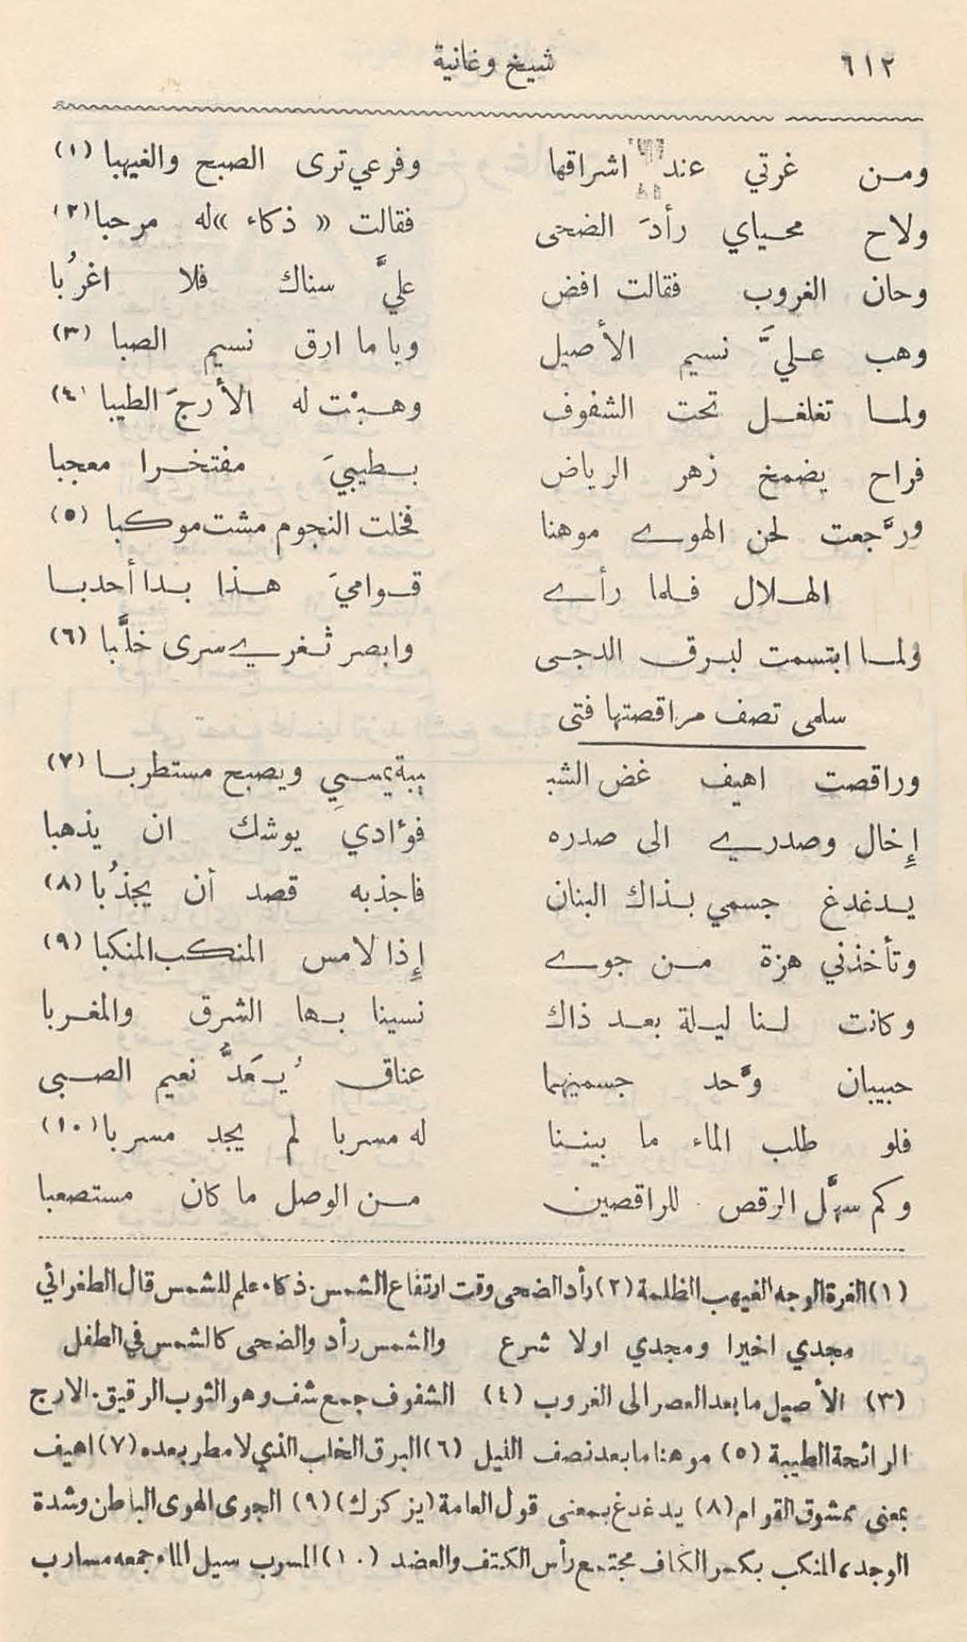 ٦١٢ شيخ وغانية
ومن غرتي عند اشراقها وفرعي ترى الصبح والغيهبا (١)
ولاح محياي رأدَ الضحى فقالت «ذكاء» له مرحبا (٢)
وحان الغروب فقالت افض عليَّ سناك فلا اغرُبا
وهب عليَّ نسيم الأصيل ويا ما ارق نسيم الصبا (٣)
ولما تغلغل تحت الشفوف وهبْت له الأرجَ الطيبا (٤)
فراح يضمخ زهر الرياض بطيبيَ مفتخرا معجبا
ورَّجعت لحن الهوى موهنا فخلت النجوم مشت موكبا (٥)
الهلال فلما رأى قواميَ هذا بدا أحدبا
ولما ابتسمت لبرق الدجى وابصر ثغري سرى خلَّبا (٦)
سلمى تصف مراقصتها فتى
وراقصت اهيف غض الشبـ ـيبة يمسي ويصبح مستطربا (٧)
إخال وصدري الى صدره فوءادي يوشك ان يذهبا
يدغدغ جسمي بذاك البنان فاجذبه قصد أن يجذُبا (٨)
وتأخذني هزة من جوى إذا لامس المنكب المنكبا (٩)
وكانت لنا ليلة بعد ذاك نسينا بها الشرق والمغربا
حبيبان وحَّد جسميهما عناق يُعَدُّ نعيم الصبى
فلو طلب الماء ما بيننا له مسربا لم يجد مسربا (١٠)
وكم سهَّل الرقص للراقصين من الوصل ما كان مستصعبا
(١) الغرة الوجه الغيهب الظلمة (٢) رأد الضحى وقت ارتفاع الشمس. ذكاء علم للشمس قال الطغرائي
مجدي اخيرا ومجدي اولا شرع والشمس رأد والضحى كالشمس في الطفل
(٣) الأصيل ما بعد العصر الى الغروب (٤) الشفوف جمع شف وهو الثوب الرقيق. الارج
الرائحة الطيبة (٥) موهنا ما بعد نصف الليل (٦) البرق الخلب الذي لا مطر بعده (٧) اهيف
بمعنى ممشوق القوام (٨) يدغدغ بمعنى قول العامة (يزكزك) (٩) الجوى الهوى الباطن وشدة
الوجد، المنكب بكسر الكاف مجتمع رأس الكتف والعضد (١٠) المسرب سيل الماء جمعه مسارب